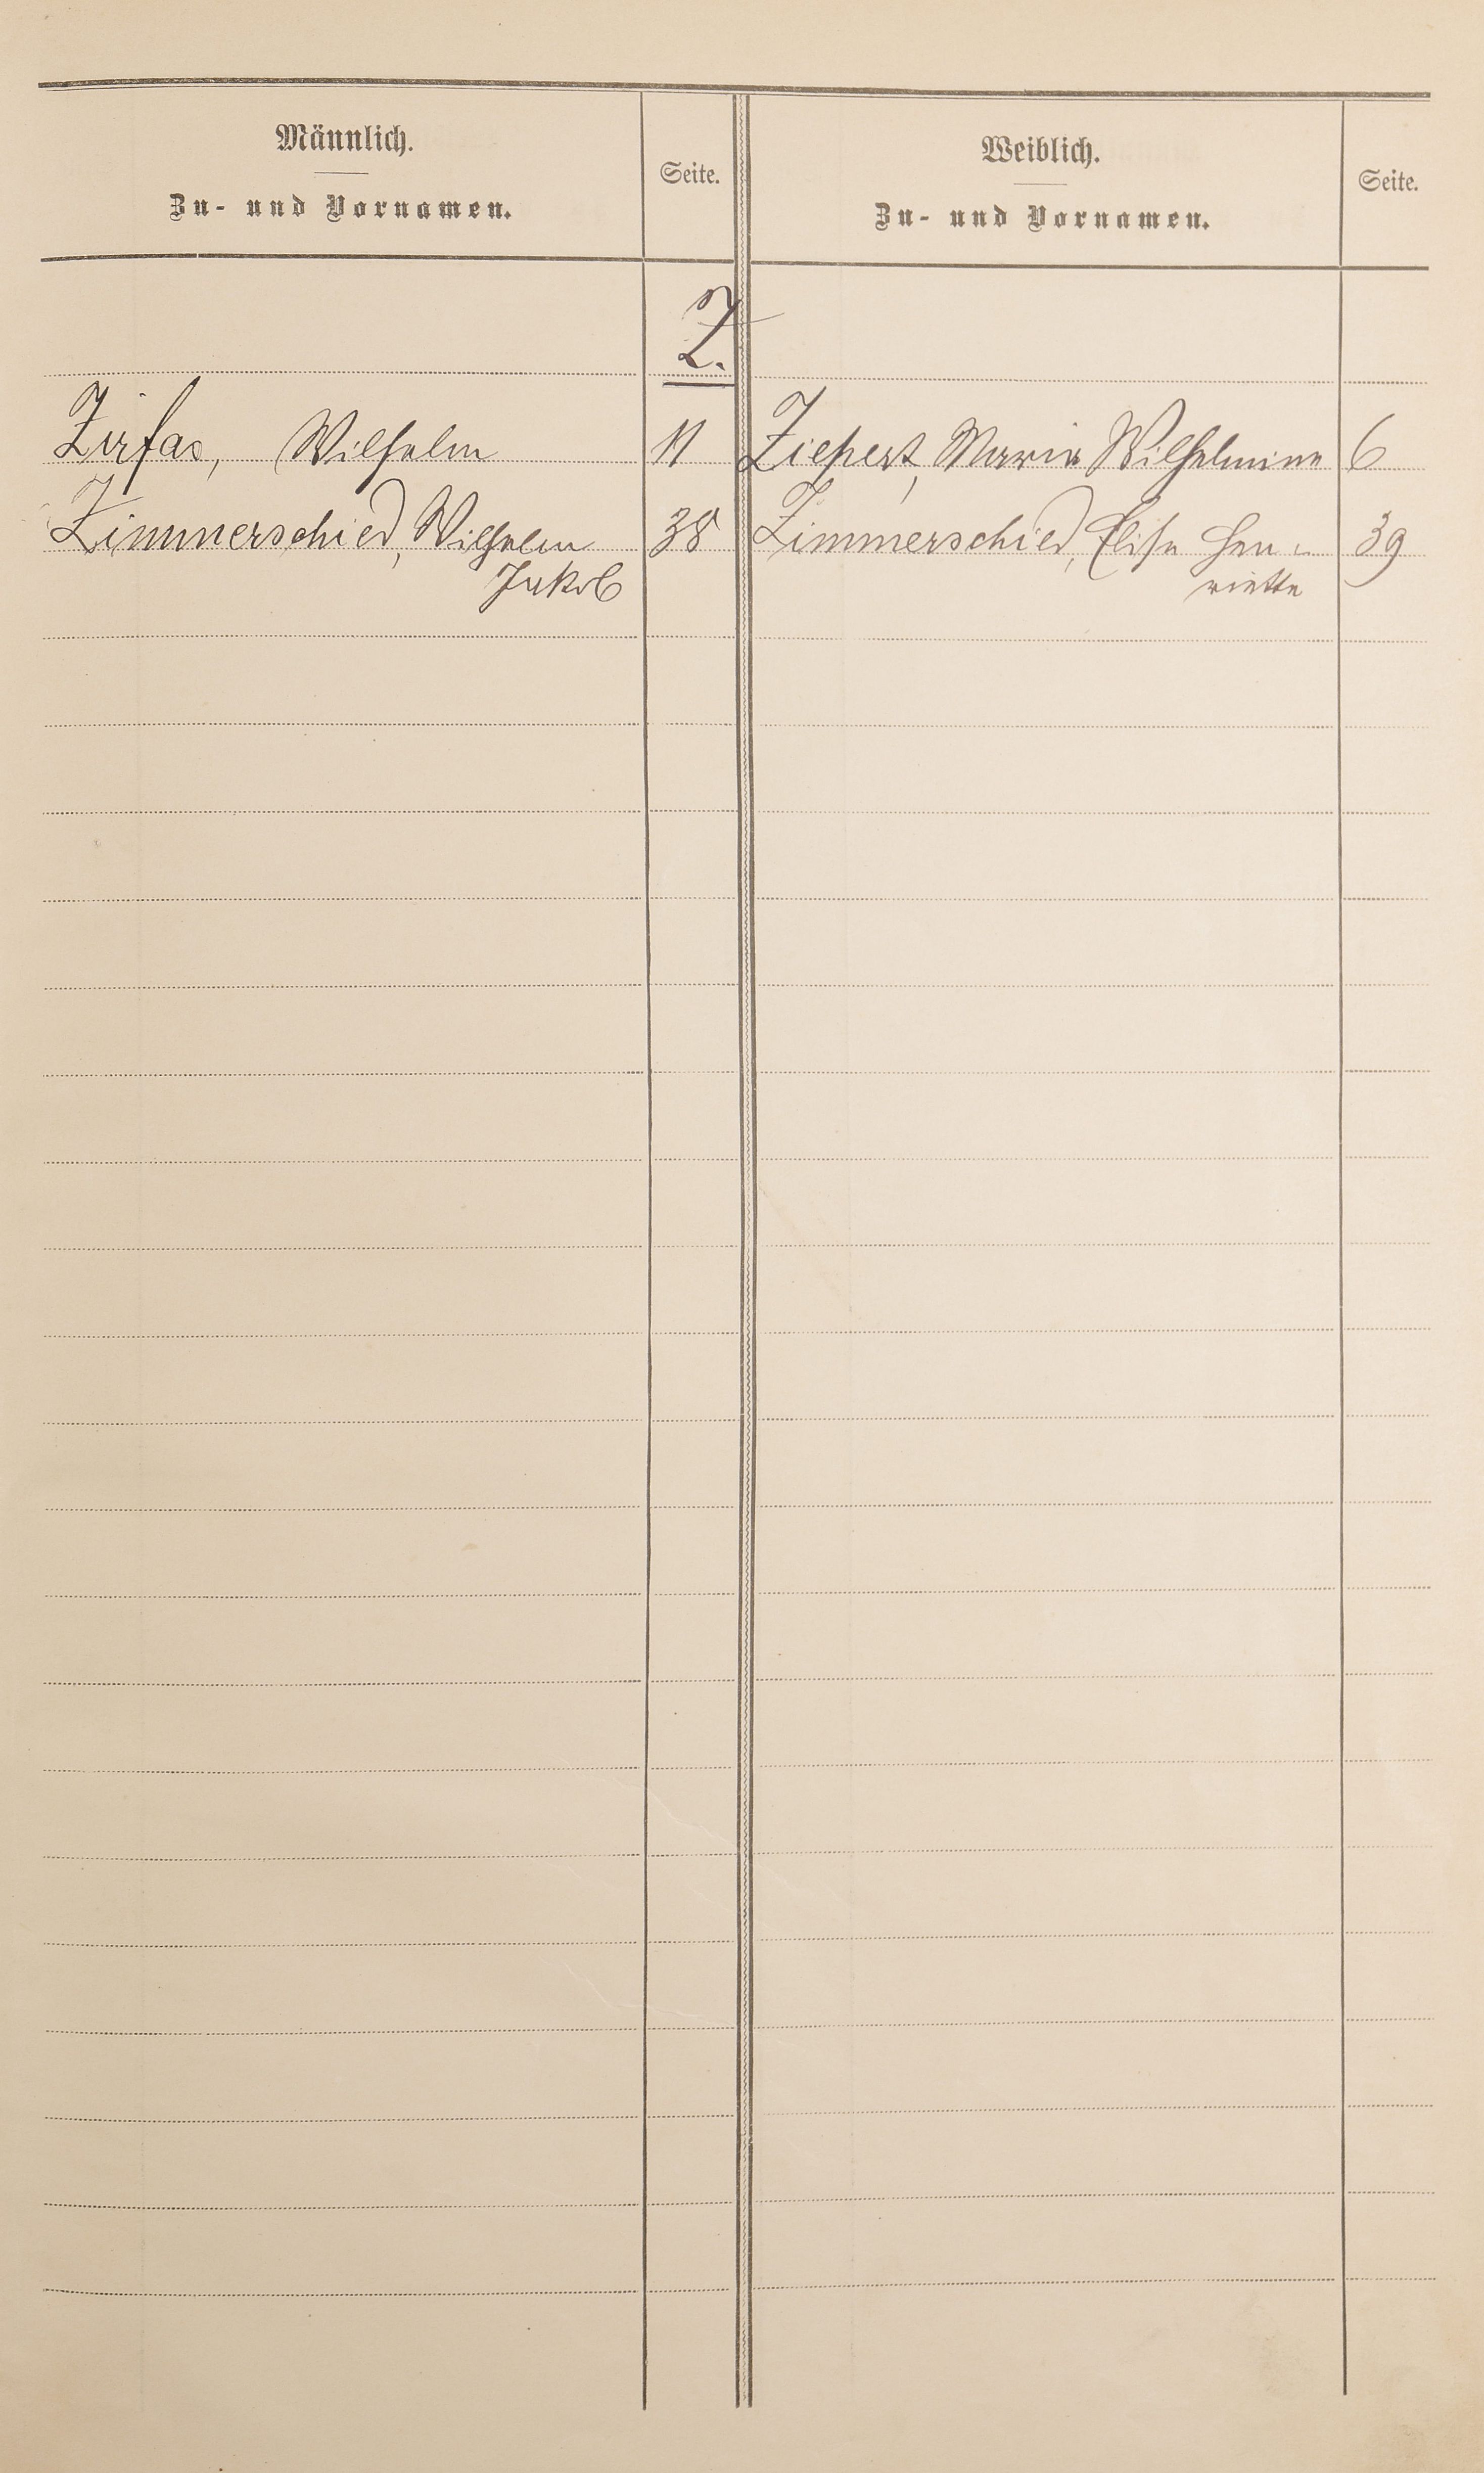 Männlich.
Zu- und Vornamen.
Seite.
Weiblich.
Zu- und Vornamen.
Seite.
Z.
Zirfas, Wilhelm 11 Ziepert, Maria Wilhelmine 6
Zimmerschied, Wilhelm 38 Zimmerschied, Elise Hen- 39
Jakob riette